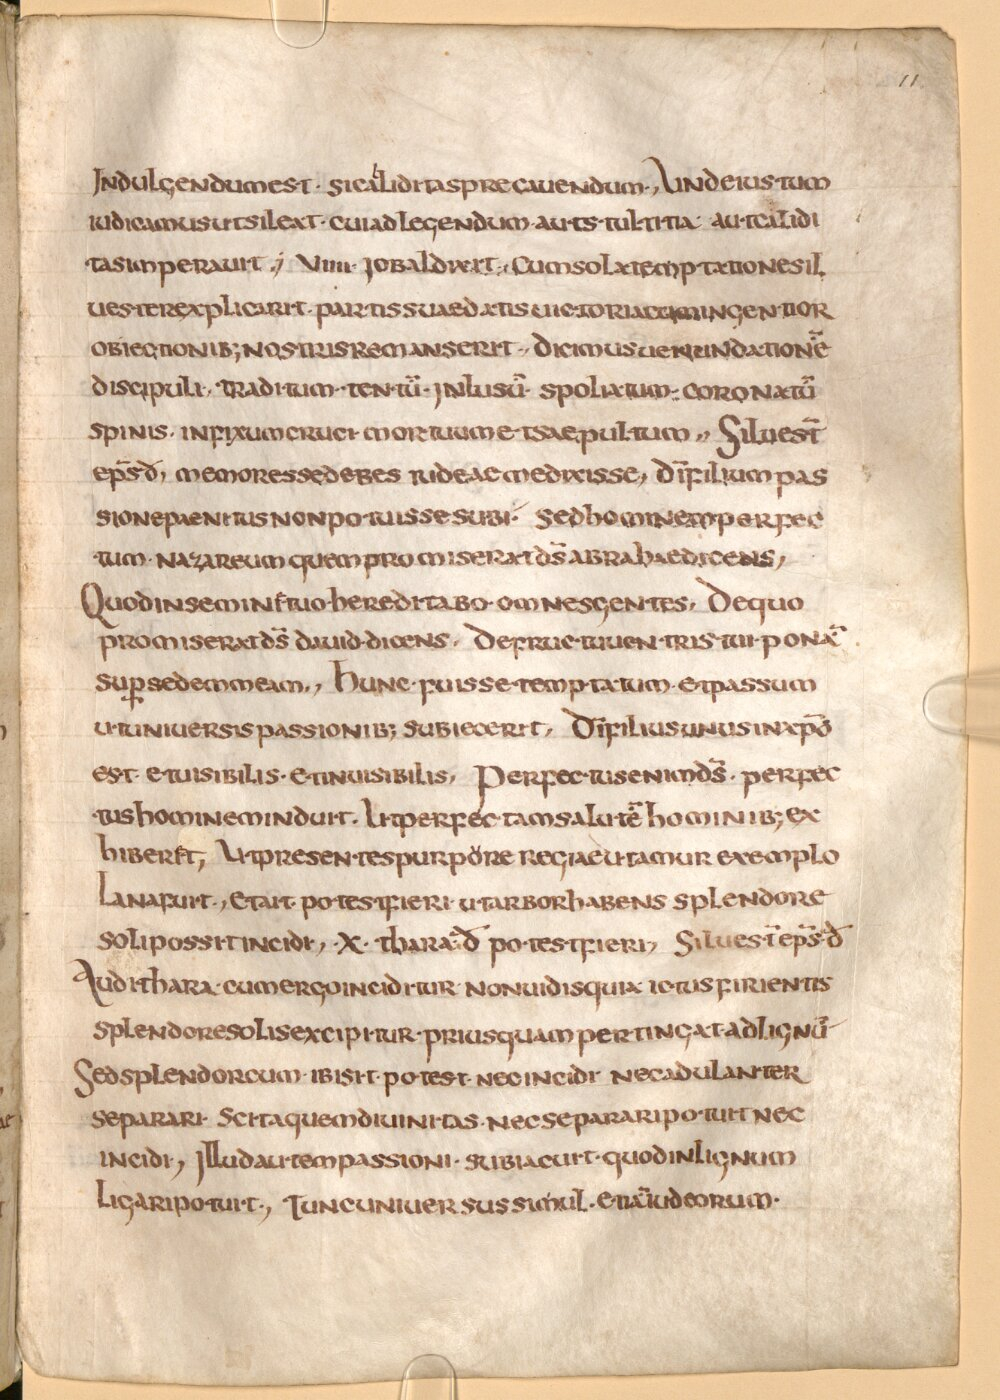 11
Indulgendum est· si caliditas precauendum·, Unde iustum
iudicamus ut sileat· cui ad legendum· aut stultitia· aut calidi
tas imperauit·; VIIII· Jobal dixit·, Cum sola temptatione sil
uester explicarit· partis suae datis uictoriam ingentior
obiectionib; nostris remanserit·, dicimus uenundationē
discipuli, traditum· tentū· Inlusū· spoliatum· coronatū
spinis· infixum cruci· mortuum et saepultum·, Siluest̄
ep̄s d̄, memores se debes iudeae me dixisse, d̄i filium pas
sione paenitus non potuisse subi· sed hominem perfec
tum· nazareum quem promiserat d̄s abrahae dicens,
Quod in semine tuo hereditabo· omnes gentes, De quo
promiserat d̄s dauid· dicens· De fructu uentris tui· ponā
sup̱ sedem meam·, Hunc fuisse temptatum· et passum
ut uniuersis passionib; subiecerit, D̄i filius unus in xp̄o
est· et uisibilis· et inuisibilis, Perfectus enim d̄s· perfec
tus hominem induit· Ut perfectam salutē hominib; ex
hiberet, Ut presentes purpore regiae utamur exemplo
Lana fuit·, et ait· potest fieri· ut arbor habens splendore
soli possit incidi, ·X· thara· d̄ potest fieri, Siluest̄ ep̄s· d̄
Audi thara· cum ergo inciditur· non uidis quia ictus firientis
splendore solis excipitur· prius quam pertingat ad lignū
Sed splendor cum· ibi sit· potest nec incidi· nec adulanter
separari· Sc ita quem diuinitas· nec separari potuit nec
incidi, Illud autem passioni· subiacuit· quod in lignum
ligari potuit·, Tunc uniuersus simul· etiā iudeorum·